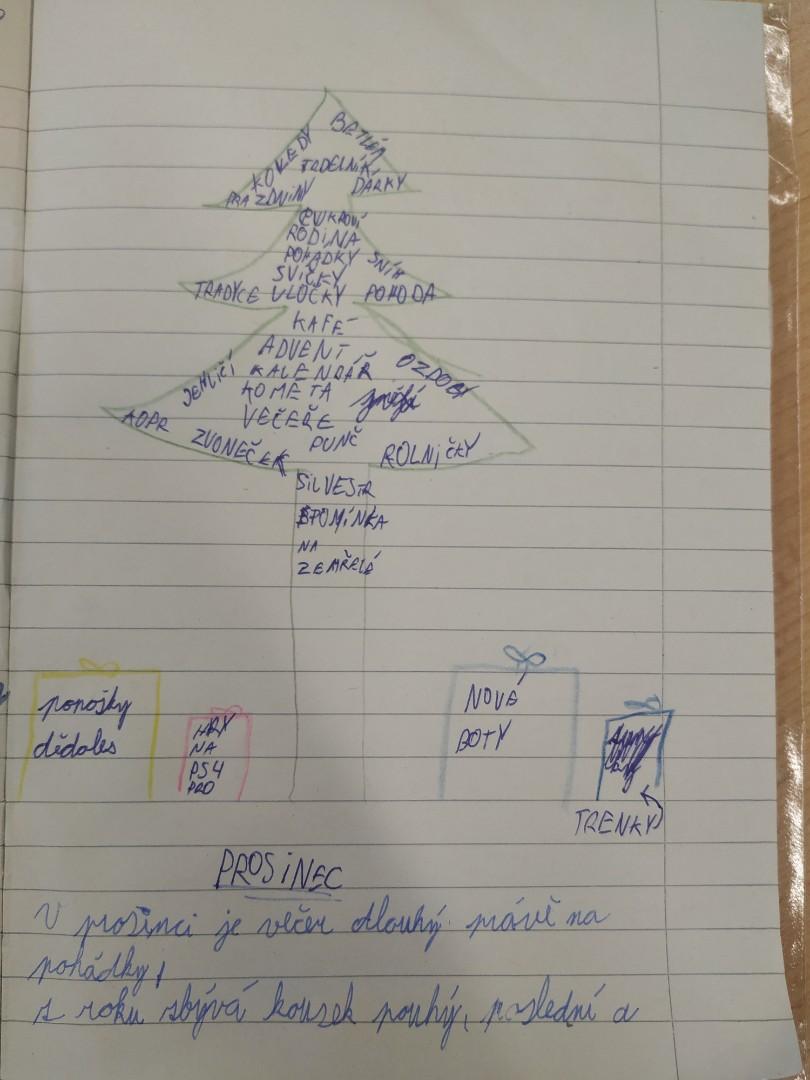 KOLEDY BETLÉM
TRDELNÍK
PRÁZDNINY DÁRKY
CUKROVÍ
RODINA
POHÁDKY SNÍH
SVÍČKY
TRADYCE VLOČKY POHODA
KAFE
ADVENT
JEHLIČÍ KALENDÁŘ OZDOBY
KOMETA
KOPR VEČEŘE
ZVONEČEK PUNČ ROLNIČKY
SILVESTR
SPOMÍNKA
NA
ZEMŘELÉ
ponožky
dědoles
HRY
NA
PS4
PRO
NOVÉ
BOTY
TRENKY
PROSINEC
V prosinci je večer dlouhý právě na
pohádky,
z roku zbývá kousek pouhý, poslední a